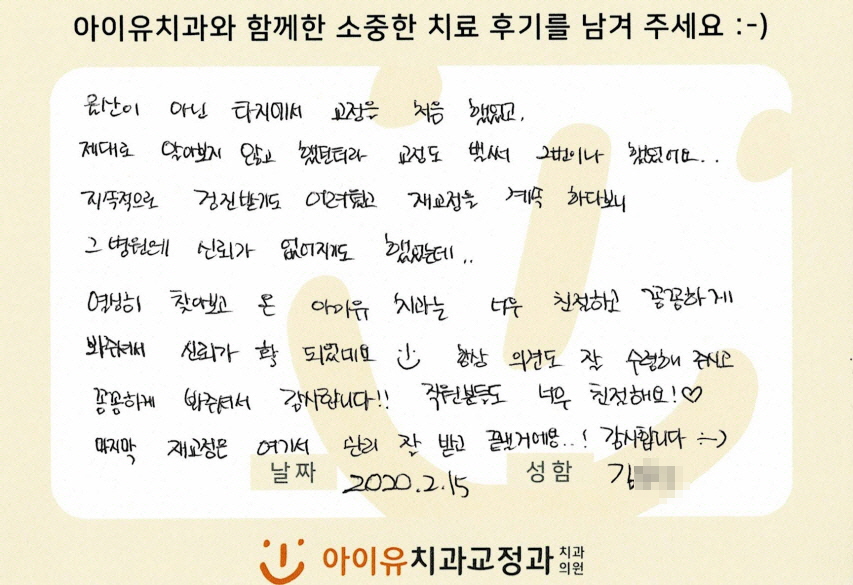 아이유치과와 함께한 소중한 치료 후기를 남겨 주세요 :-)
울산이 아닌 타지에서 교정을 처음 했었고,
제대로 알아보지 않고 했던터라 교정도 벌써 2번이나 했었어요..
지속적으로 검진받기도 어려웠고 재교정을 계속 하다보니
그 병원에 신뢰가 없어지기도 했었는데..
열심히 찾아보고 온 아이유 치과는 너무 친절하고 꼼꼼하게
봐주셔서 신뢰가 확 되었네요 항상 의견도 잘 수렴해 주시고
꼼꼼하게 봐주셔서 감사합니다!! 직원분들도 너무 친절해요!♡
마지막 재교정은 여기서 관리 잘 받고 끝낼거예용..! 감사합니다 :-)
날짜 2020.2.15 성함 김
아이유치과교정과 치과의원